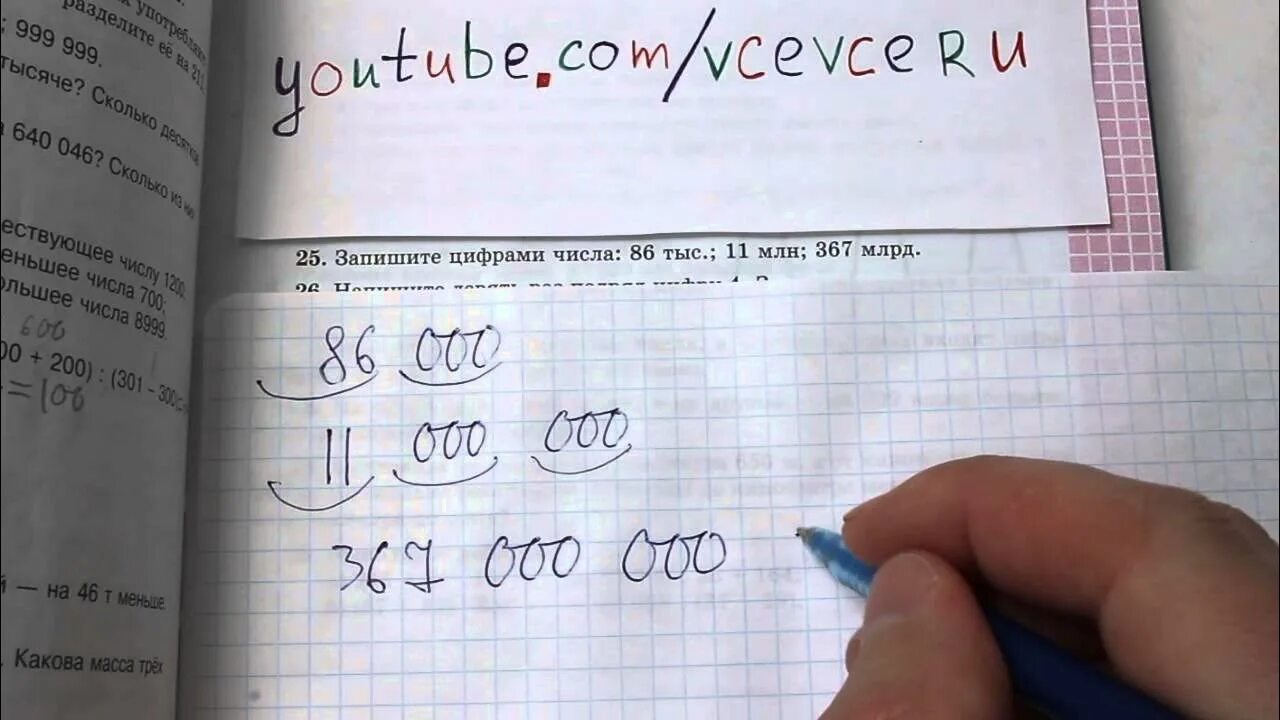 употребляя
разделите её на 211.
; 999 999.
тысяче? Сколько десятков
640 046? Сколько из них
ествующее числу 1200;
еньшее числа 700;
ольшее числа 8999.
600
00 + 200) : (301 – 300
= 100
й — на 46 т меньше.
. Какова масса трёх
youtube.com/vcevceRu
25. Запишите цифрами числа: 86 тыс.; 11 млн; 367 млрд.
26. Напишите девять раз подряд цифру 4.
86 000
11 000 000
367 000 000